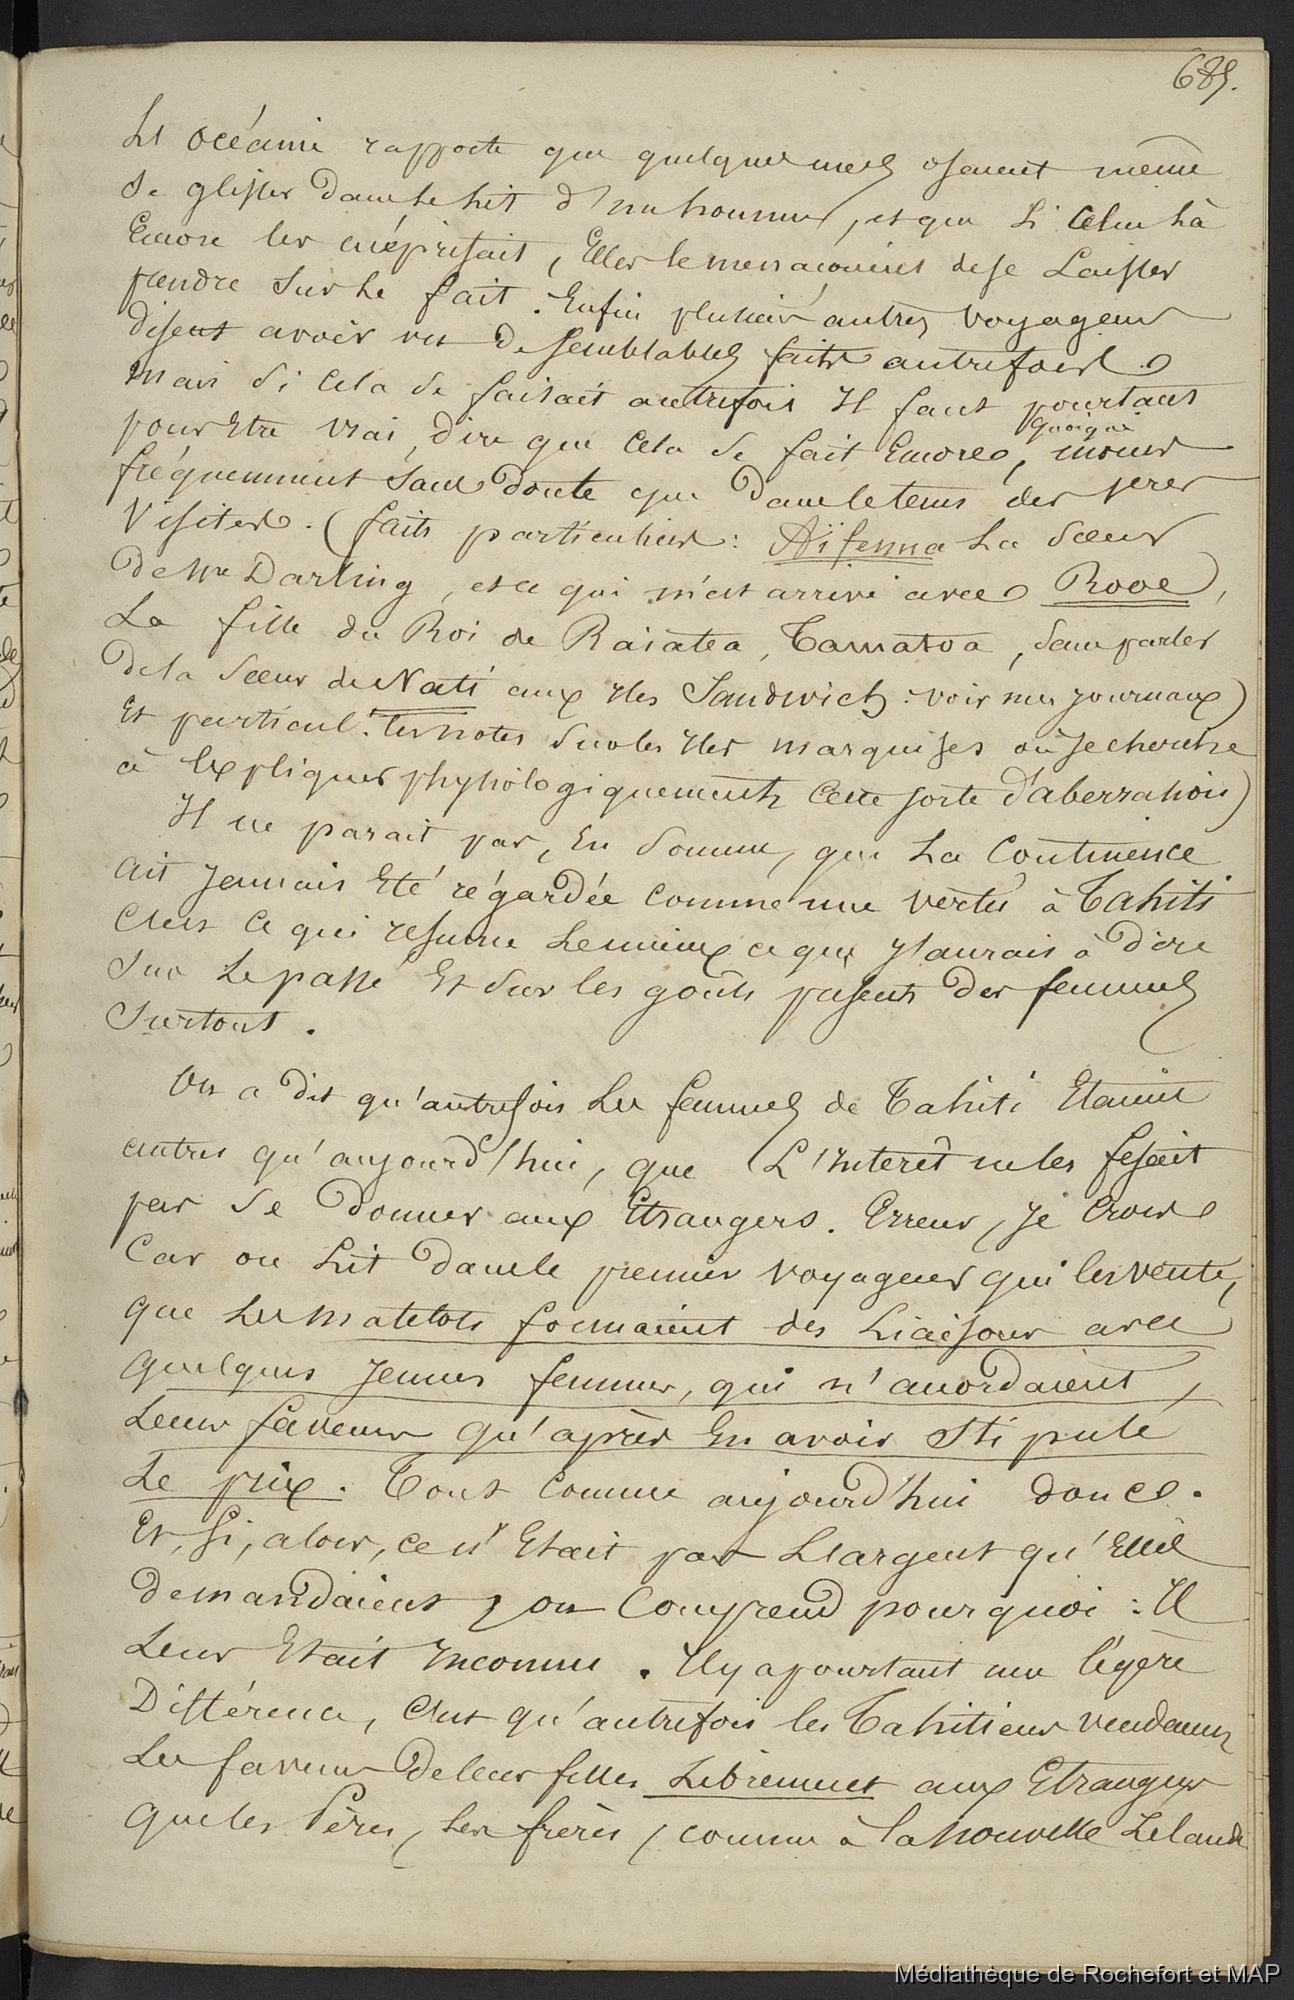 689.
Et océanie rapporte que quelques unes osaient même
se glisser dans le lit d'un homme, et que si celui là
Encore les méprisait, Elles le menaçaient de se Laisser
prendre sur le fait. Enfin plusieurs autres voyageurs
disent avoir vu de semblables faits autrefois.
Mais si cela se faisait autrefois Il faut pourtant
pour Etre vrai, dire que cela se fait Encore, quoique moins
fréquemment sans doute que dans le tems des 1eres
Visites. (faits particuliers: Aïfenua La sœur
de Mr Darling, et ce qui m'est arrivé avec Rooe,
La fille du Roi de Raiatea, Tamatoa, sans parler
de la sœur de Nati aux Iles Sandwich: voir mes journaux)
Et particul. les notes sur les Iles marquises où je cherche
à Expliquer physiologiquement cette sorte d'aberration)
Il ne parait pas, En somme, que La Continence
ait Jamais Eté régardée comme une vertu à Tahiti
C'est ce qui resume Le mieux ce que J'aurais à dire
sur Le passé Et sur les goûts présents des femmes
surtout.
On a dit qu'autrefois Les femmes de Tahiti Etaient
autres qu'aujourd'hui, que L'Interet ne les fesait
pas se donner aux Etrangers. Erreur, Je Crois
Car on Lit dans le premier voyageur qui les vante,
que Les matelots formaient des Liaisons avec
quelques Jeunes femmes, qui n'accordaient
Leurs faveurs qu'après En avoir Stipulé
Le prix. Tout comme aujourd'hui donc.
Et, si, alors, ce n'Etait pas L'argent qu'Elles
demandaient, on Comprend pourquoi: Il
Leur Etait Inconnu. Il y a pourtant une légère
Différence, C'est qu'autrefois les Tahitiens vendaient
Les faveurs de leurs filles Librement aux Etrangers
que les Pères, les frères, comme à la Nouvelle Zelande
Médiathèque de Rochefort et MAP